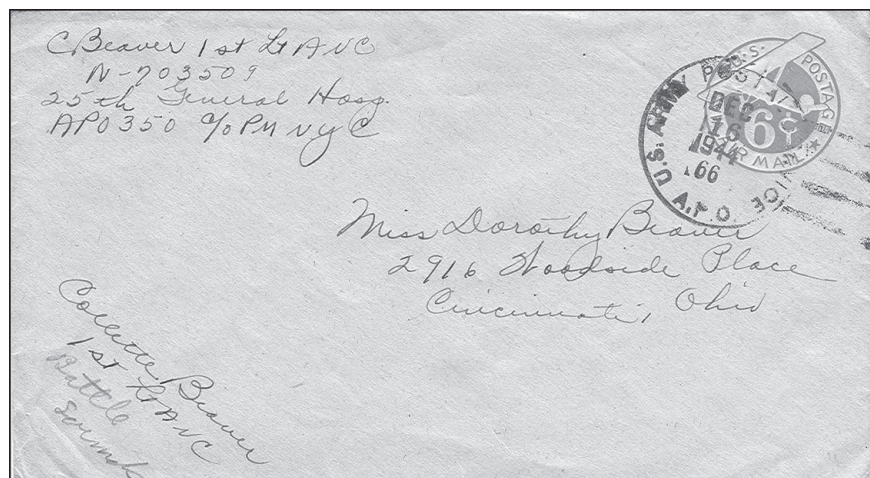 C Beaver 1st Lt ANC
N-703509
25th General Hosp.
APO 350 c/o PM N Y C
U.S. POSTAGE
6¢
AIR MAIL
U.S. ARMY POSTAL
DEC
16
1944
166
A.P.O.
Miss Dorothy Beaver
2916 Woodside Place
Cincinnati, Ohio
Collette Beaver
1st Lt ANC
Battle
Sounds